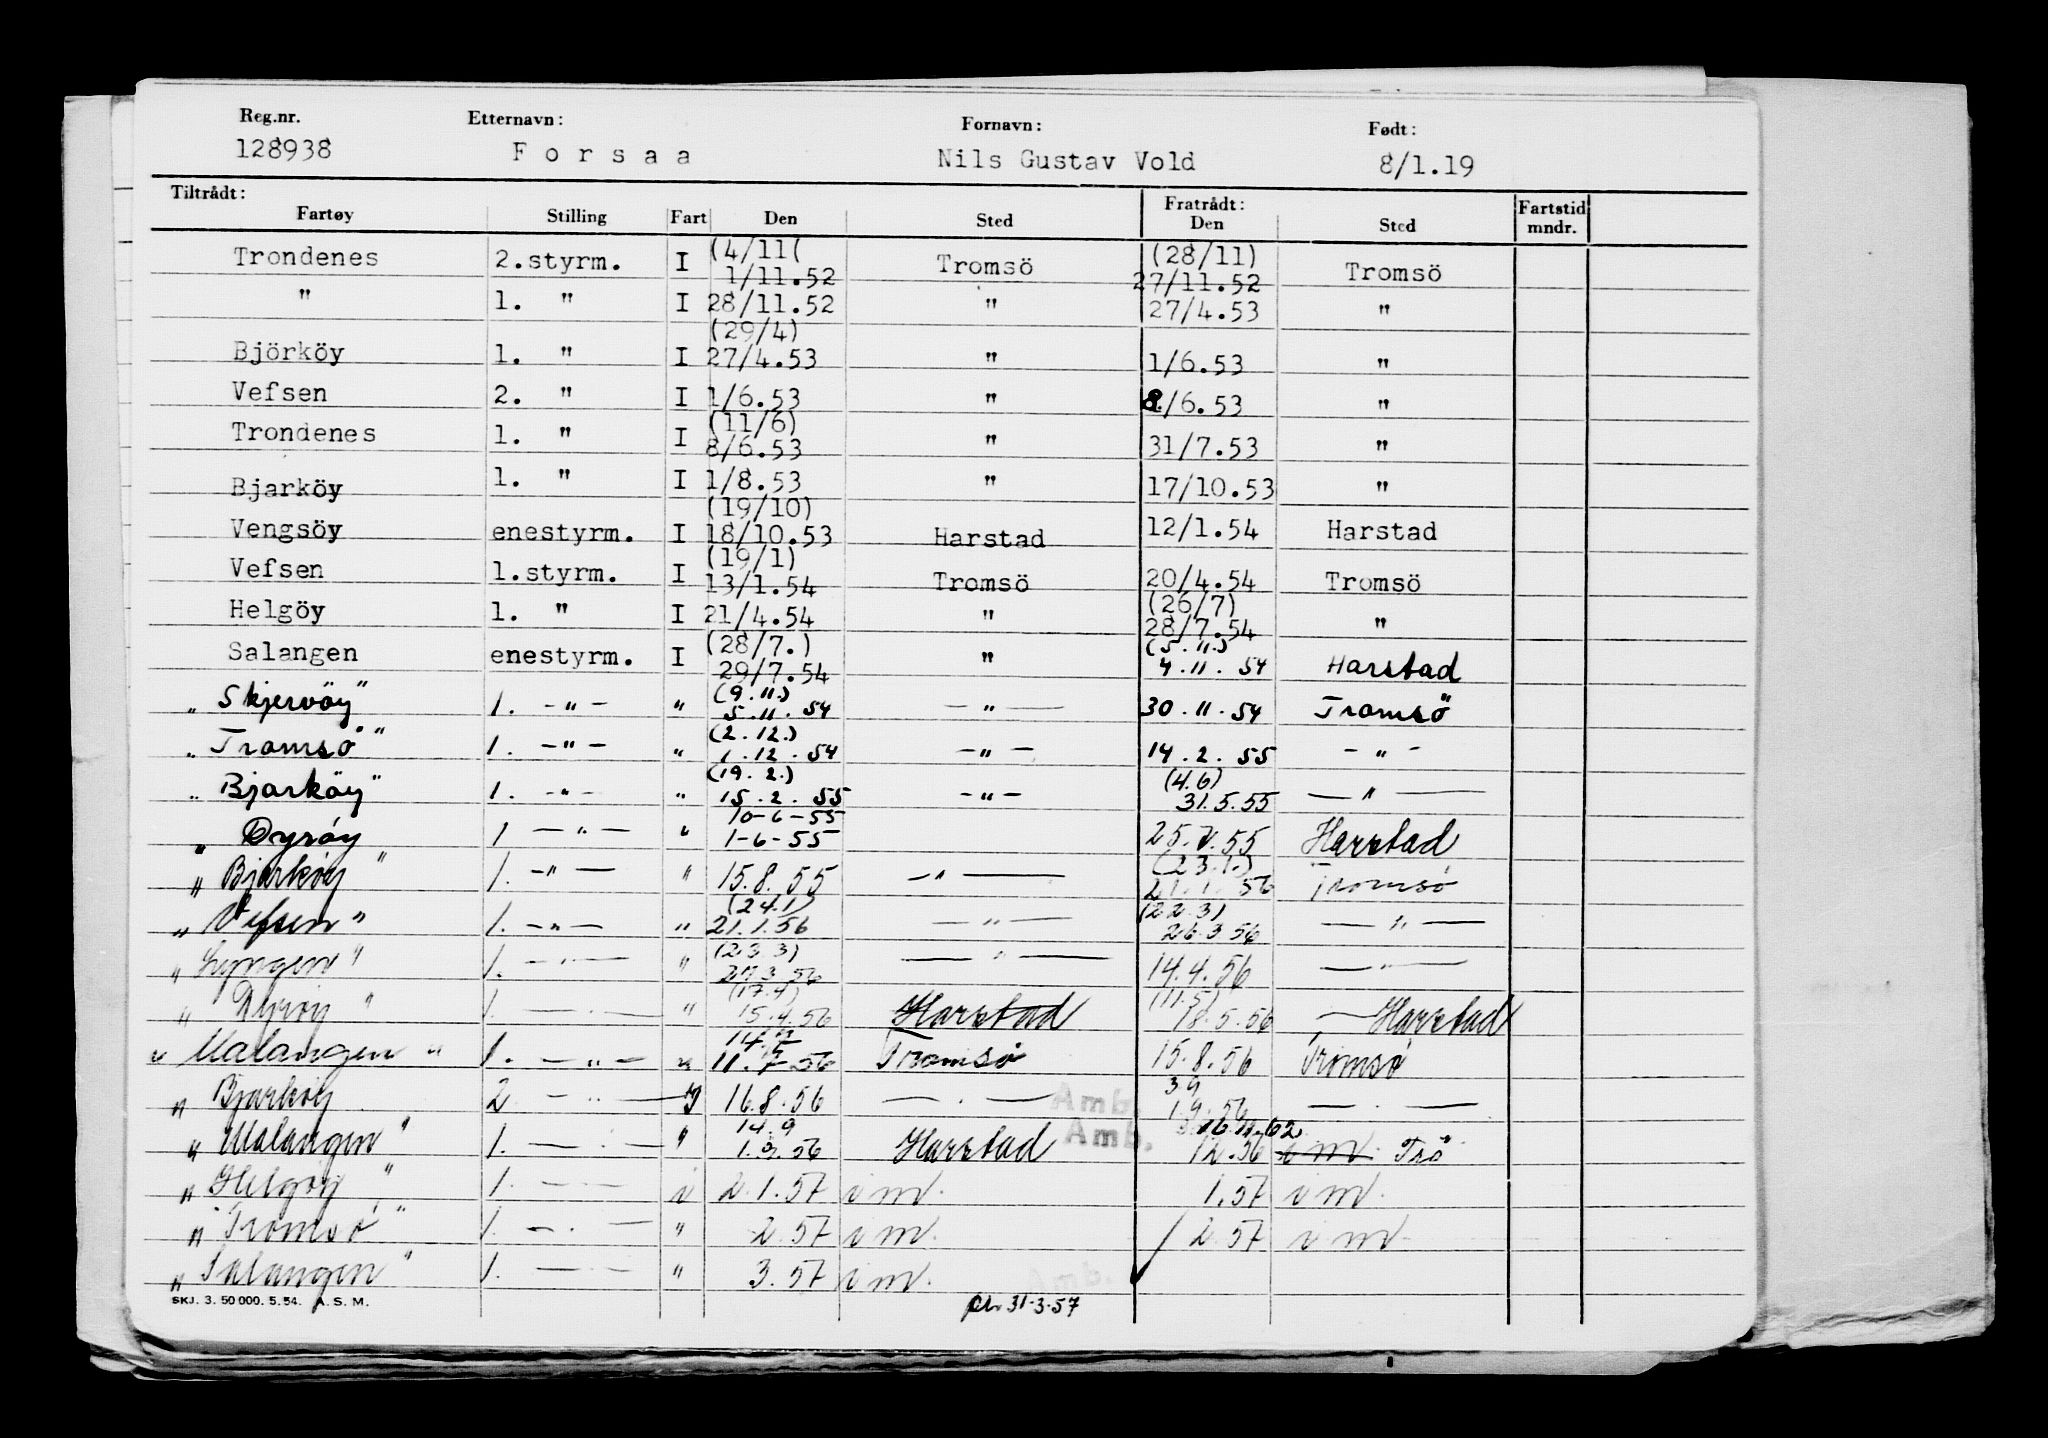 Reg.nr. Etternavn: Fornavn: Født:
128938 Forsaa Nils Gustav Vold 8/1.19
Tiltrådt: Fratrådt:
Fartøy Stilling Fart Den Sted Den Sted Fartstid mndr.
(4/11( (28/11)
Trondenes 2.styrm. I 1/11.52 Tromsö 27/11.52 Tromsö
" 1. " I 28/11.52 " 27/4.53 "
(29/4)
Björköy 1. " I 27/4.53 " 1/6.53 "
Vefsen 2. " I 1/6.53 " 8/6.53 "
(11/6)
Trondenes 1. " I 8/6.53 " 31/7.53 "
Bjarköy 1. " I 1/8.53 " 17/10.53 "
(19/10)
Vengsöy enestyrm. I 18/10.53 Harstad 12/1.54 Harstad
(19/1)
Vefsen 1.styrm. I 13/1.54 Tromsö 20/4.54 Tromsö
(26/7)
Helgöy 1. " I 21/4.54 " 28/7.54 "
(28/7.) (5.11.)
Salangen enestyrm. I 29/7.54 " 4.11.54 Harstad
(9.11.)
"Skjervöy" 1. -"- " 5.11.54 -"- 30.11.54 Tromsö
(2.12.)
"Tromsö" 1. -"- " 1.12.54 -"- 14.2.55 -"-
(19.2.) (4.6)
"Bjarköy" 1. -"- " 15.2.55 -"- 31.5.55 -"-
10-6-55
"Dyröy 1 -"- " 1-6-55 25.7.55 Harstad
(23.1.)
"Bjarköy" 1. -"- " 15.8.55 -"- 21.1.56 Tromsö
(24.1) (22.3)
"Vefsen" 1. -"- " 21.1.56 -"- 26.3.56 -"-
(23.3)
"Lyngen" 1. -"- " 3.56 -"- 14.4.56 -"-
(17.4) (11.5)
"Dyröy" 1. -"- " 15.4.56 Harstad 18.5.56 - Harstad
"Malangen" 1. -"- " 11.7.56 Tromsö 15.8.56 Tromsö
3.9
"Bjarköy 2 -"- I 16.8.56 -"- Amb. 1.9.56 -"-
14.9 16.11.62
"Malangen" 1. -"- " 1.9.56 Harstad Amb. 12.56 i m. Trö
"Helgöy" 1. -"- i 2.1.57 i m. 1.57 i m.
"Tromsö" 1. -"- " 2.57 i m. 2.57 i m.
"Salangen" 1. -"- " 3.57 i m. Amb.
SKJ. 3. 50 000. 5.54. A. S. M. 31-3-57